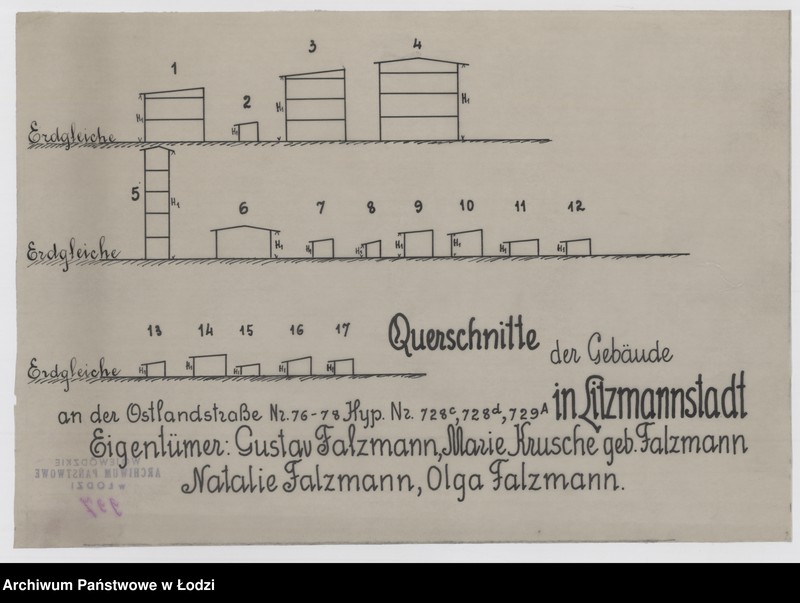 1 2 3 4
H₁ H₁ H₁ H₁
Erdgleiche
5 6 7 8 9 10 11 12
H₁ H₁ H₁ H₁ H₁ H₁ H₁ H₁
Erdgleiche
13 14 15 16 17
H₁ H₁ H₁ H₁ H₁
Erdgleiche
Querschnitte der Gebäude
an der Ostlandstraße Nr. 76-78 Hyp. Nr. 728ᶜ, 728ᵈ, 729ᴬ in Litzmannstadt
Eigentümer: Gustav Falzmann, Marie Krusche geb. Falzmann
Natalie Falzmann, Olga Falzmann.
WOJEWÓDZKIE
ARCHIWUM PAŃSTWOWE
w ŁODZI
997
Archiwum Państwowe w Łodzi